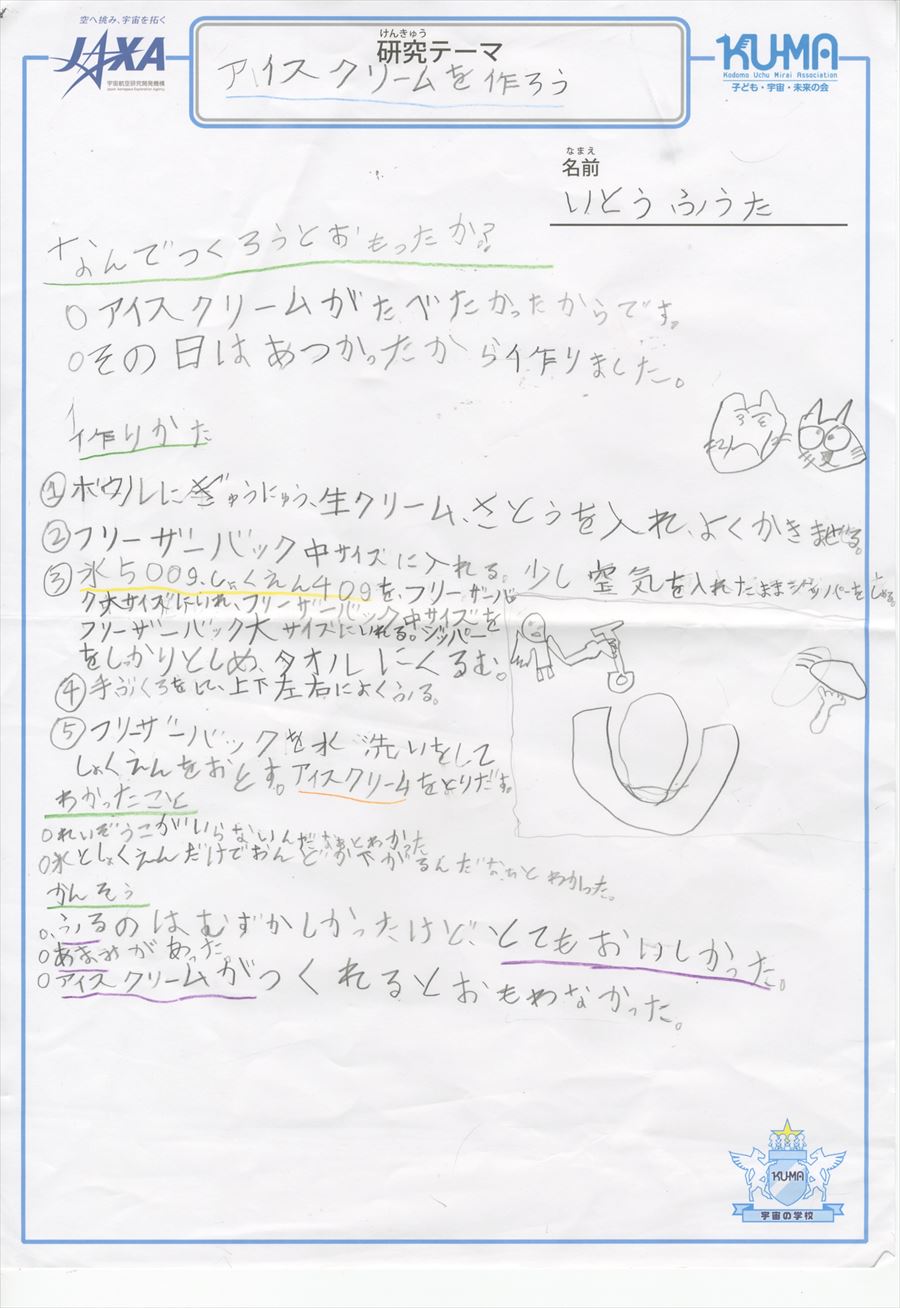 空へ挑み、宇宙を拓く
JAXA
宇宙航空研究開発機構
Japan Aerospace Exploration Agency
けんきゅう
研究テーマ
アイスクリームを作ろう
KU-MA
Kodomo Uchu Mirai Association
子ども・宇宙・未来の会
なまえ
名前
いとうふうた
なんでつくろうとおもったか?
○アイスクリームがたべたかったからです。
○その日はあつかったから作りました。
作りかた
①ボウルにぎゅうにゅう、生クリーム、さとうを入れ、よくかきまぜる。
②フリーザーバック中サイズに入れる。少し空気を入れたままジッパーをしめる。
③氷500g、しょくえん40gを、フリーザーバッ
ク大サイズにいれ、フリーザーバック中サイズを
フリーザーバック大サイズにいれる。ジッパー
をしっかりとしめ、タオルにくるむ。
④手ぶくろをし、上下左右によくふる。
⑤フリーザーバックを水洗いをして
しょくえんをおとす。アイスクリームをとりだす。
わかったこと
○れいぞうこがいらないんだなぁとわかった
○氷としょくえんだけでおんどが下がるんだなぁとわかった。
かんそう
○ふるのはむずかしかったけど、とてもおいしかった。
○あまみがあった。
○アイスクリームがつくれるとおもわなかった。
KU-MA
宇宙の学校